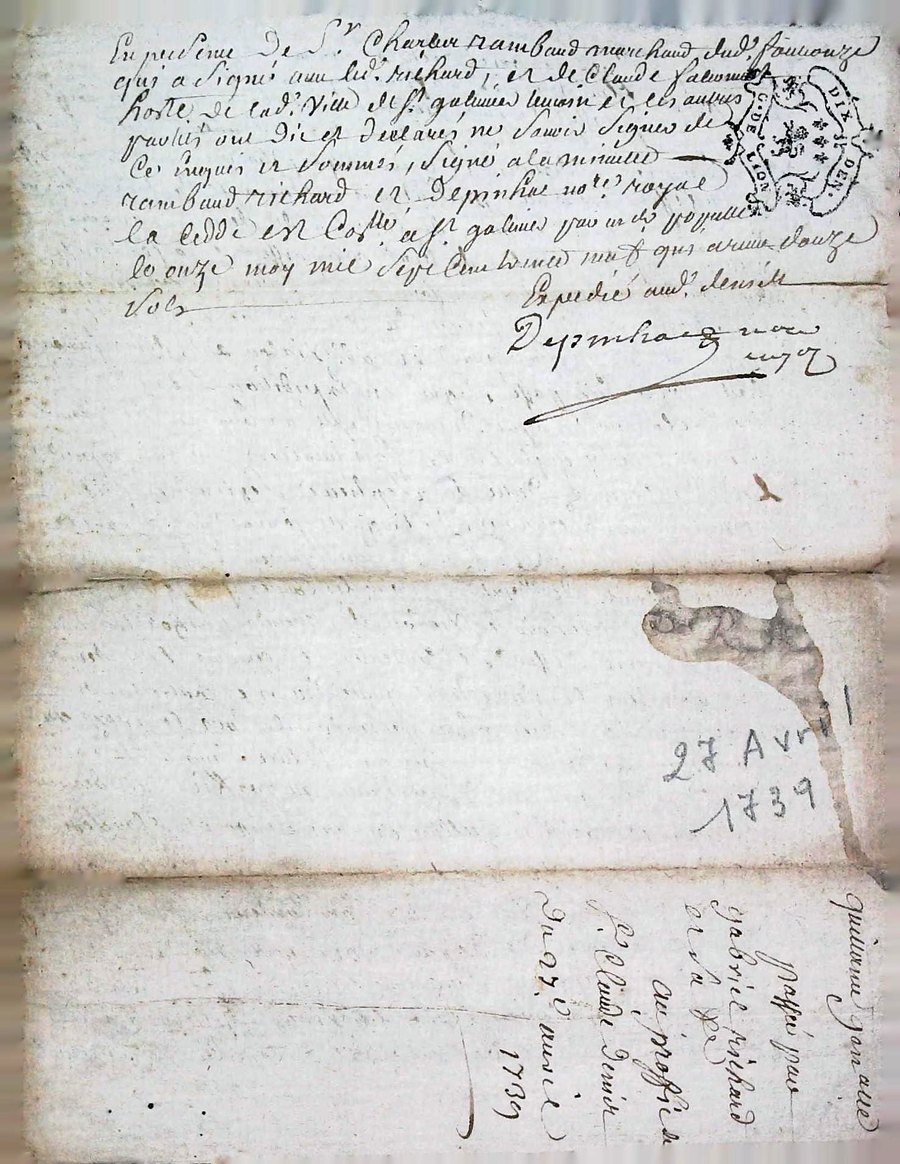 En presence De Sr Charles rambaud marchand dud. 
qui a Signé avec led. richard, et de Claude
hoste de lad. Ville de St galmier temoin et les autres
parties ont Dit et declarés ne Savoir Signer de
Ce enquis et Sommés, Signé a la minutte
rambaud richard et Depinhac notre royal
la cedde est Collé a St galmier par
le onze may mil Sept Cent trente neuf qui a reçu douze
Sols
Expedié aud. denis
Depinhac
G. DE LION
DIX DEN.
27 Avril
1739
quittance
passée par
gabriel richard
et sa fe
au proffit de
St. Claude Denis
Du 27e avril
1739